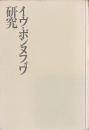 イヴ・ボンヌフォワ
研究